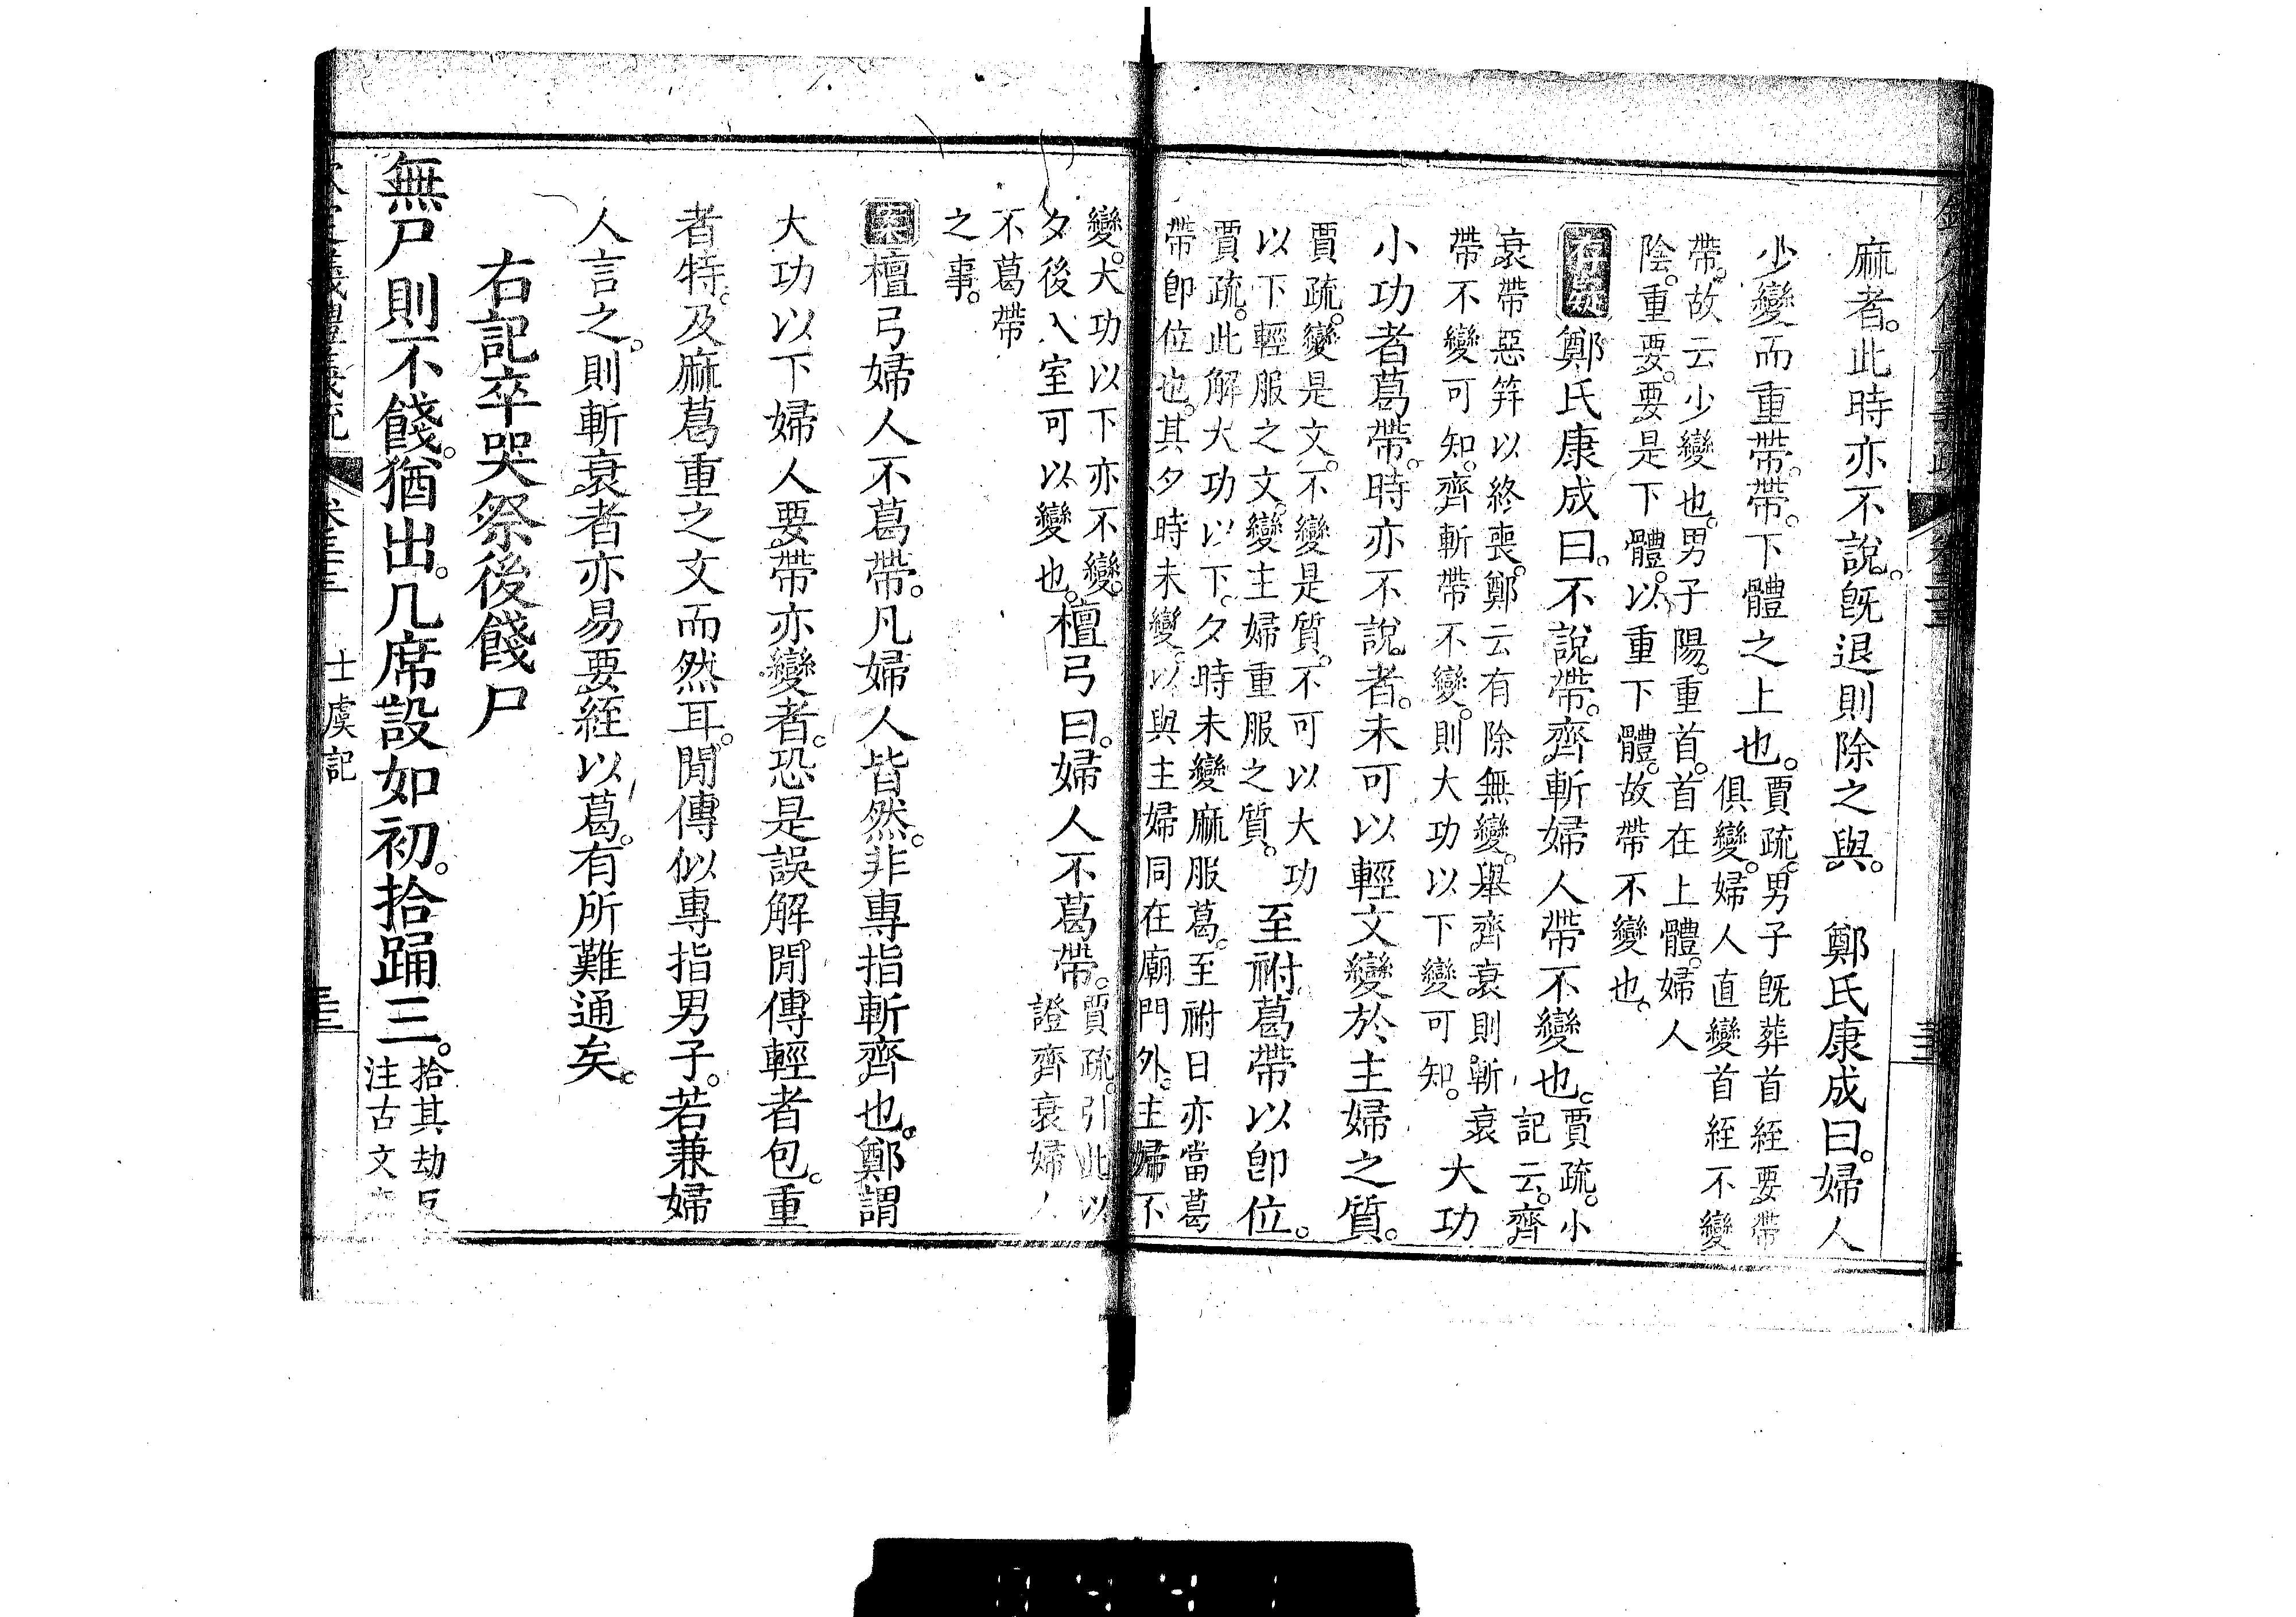 麻者。此時亦不說。旣退則除之與。　鄭氏康成曰。婦人
少變而重帶。帶。下體之上也。賈疏。男子旣葬首絰要帶
俱變。婦人直變首絰不變
帶。故云少變也。男子陽。重首。首在上體。婦人
陰。重要。要是下體。以重下體。故帶不變也。
存疑鄭氏康成曰。不說帶。齊斬婦人帶不變也。賈疏。小
記云。齊
衰帶惡筓以終喪。鄭云有除無變。舉齊衰則斬衰
帶不變可知。齊斬帶不變。則大功以下變可知。大功
小功者葛帶。時亦不說者。未可以輕文變於主婦之質。
賈疏。變是文。不變是質。不可以大功
以下輕服之文。變主婦重服之質。至祔。葛帶以卽位。
賈疏。此解大功以下。夕時未變麻服葛。至祔日亦當葛
帶卽位也。其夕時未變。以與主婦同在廟門外。主婦不
變。大功以下亦不變。
夕後入室可以變也。檀弓曰。婦人不葛帶。賈疏。引此以
證齊衰婦人
不葛帶
之事。
案檀弓婦人不葛帶。凡婦人皆然。非專指斬齊也。鄭謂
大功以下婦人要帶亦變者。恐是誤解閒傳輕者包。重
者特。及麻葛重之文而然耳。閒傳似專指男子。若兼婦
人言之。則斬衰者亦易要絰以葛。有所難通矣。
右記卒哭祭後餞尸
無尸則不餞。猶出。几席設如初。拾踊三。拾其劫反
注古文
士虞記